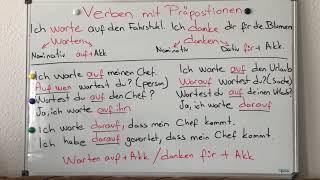 Verben mit Präpositionen
Ich warte auf den Fahrstuhl. Ich danke dir für die Blumen
Warten danken
Nominativ auf+Akk Nominativ Dativ für+Akk.
Ich warte auf meinen Chef.
Auf wen wartest du? (person)
Wartest du auf den Chef?
Ja, ich warte auf ihn
Ich warte auf den Urlaub
Worauf wartest du? (Sache)
Wartest du auf deinen Urlaub?
Ja, ich warte darauf
Ich warte darauf, dass mein Chef kommt.
Ich habe darauf gewartet, dass mein Chef kommt.
Warten auf + Akk / danken für + Akk